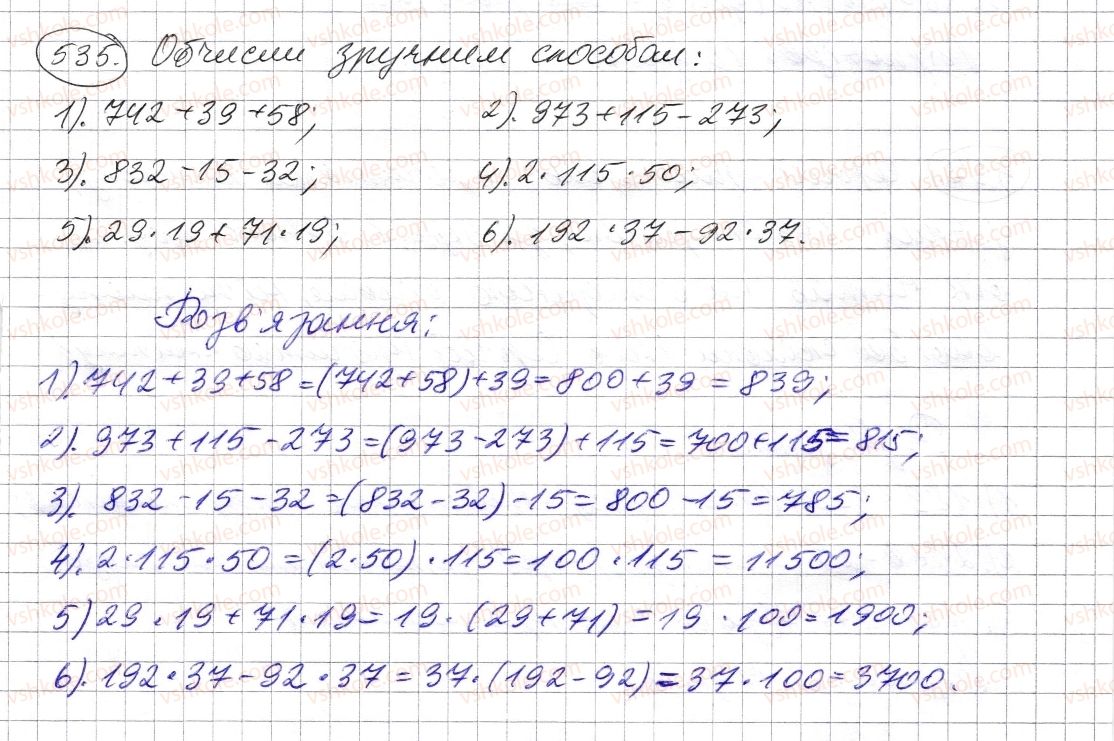 535. Обчисли зручним способом:
1). 742 + 39 + 58; 2). 973 + 115 - 273;
3). 832 - 15 - 32; 4). 2 · 115 · 50;
5). 29 · 19 + 71 · 19; 6). 192 · 37 - 92 · 37.
Розв'язання:
1). 742 + 39 + 58 = (742 + 58) + 39 = 800 + 39 = 839;
2). 973 + 115 - 273 = (973 - 273) + 115 = 700 + 115 = 815;
3). 832 - 15 - 32 = (832 - 32) - 15 = 800 - 15 = 785;
4). 2 · 115 · 50 = (2 · 50) · 115 = 100 · 115 = 11500;
5) 29 · 19 + 71 · 19 = 19 · (29 + 71) = 19 · 100 = 1900;
6). 192 · 37 - 92 · 37 = 37 · (192 - 92) = 37 · 100 = 3700.